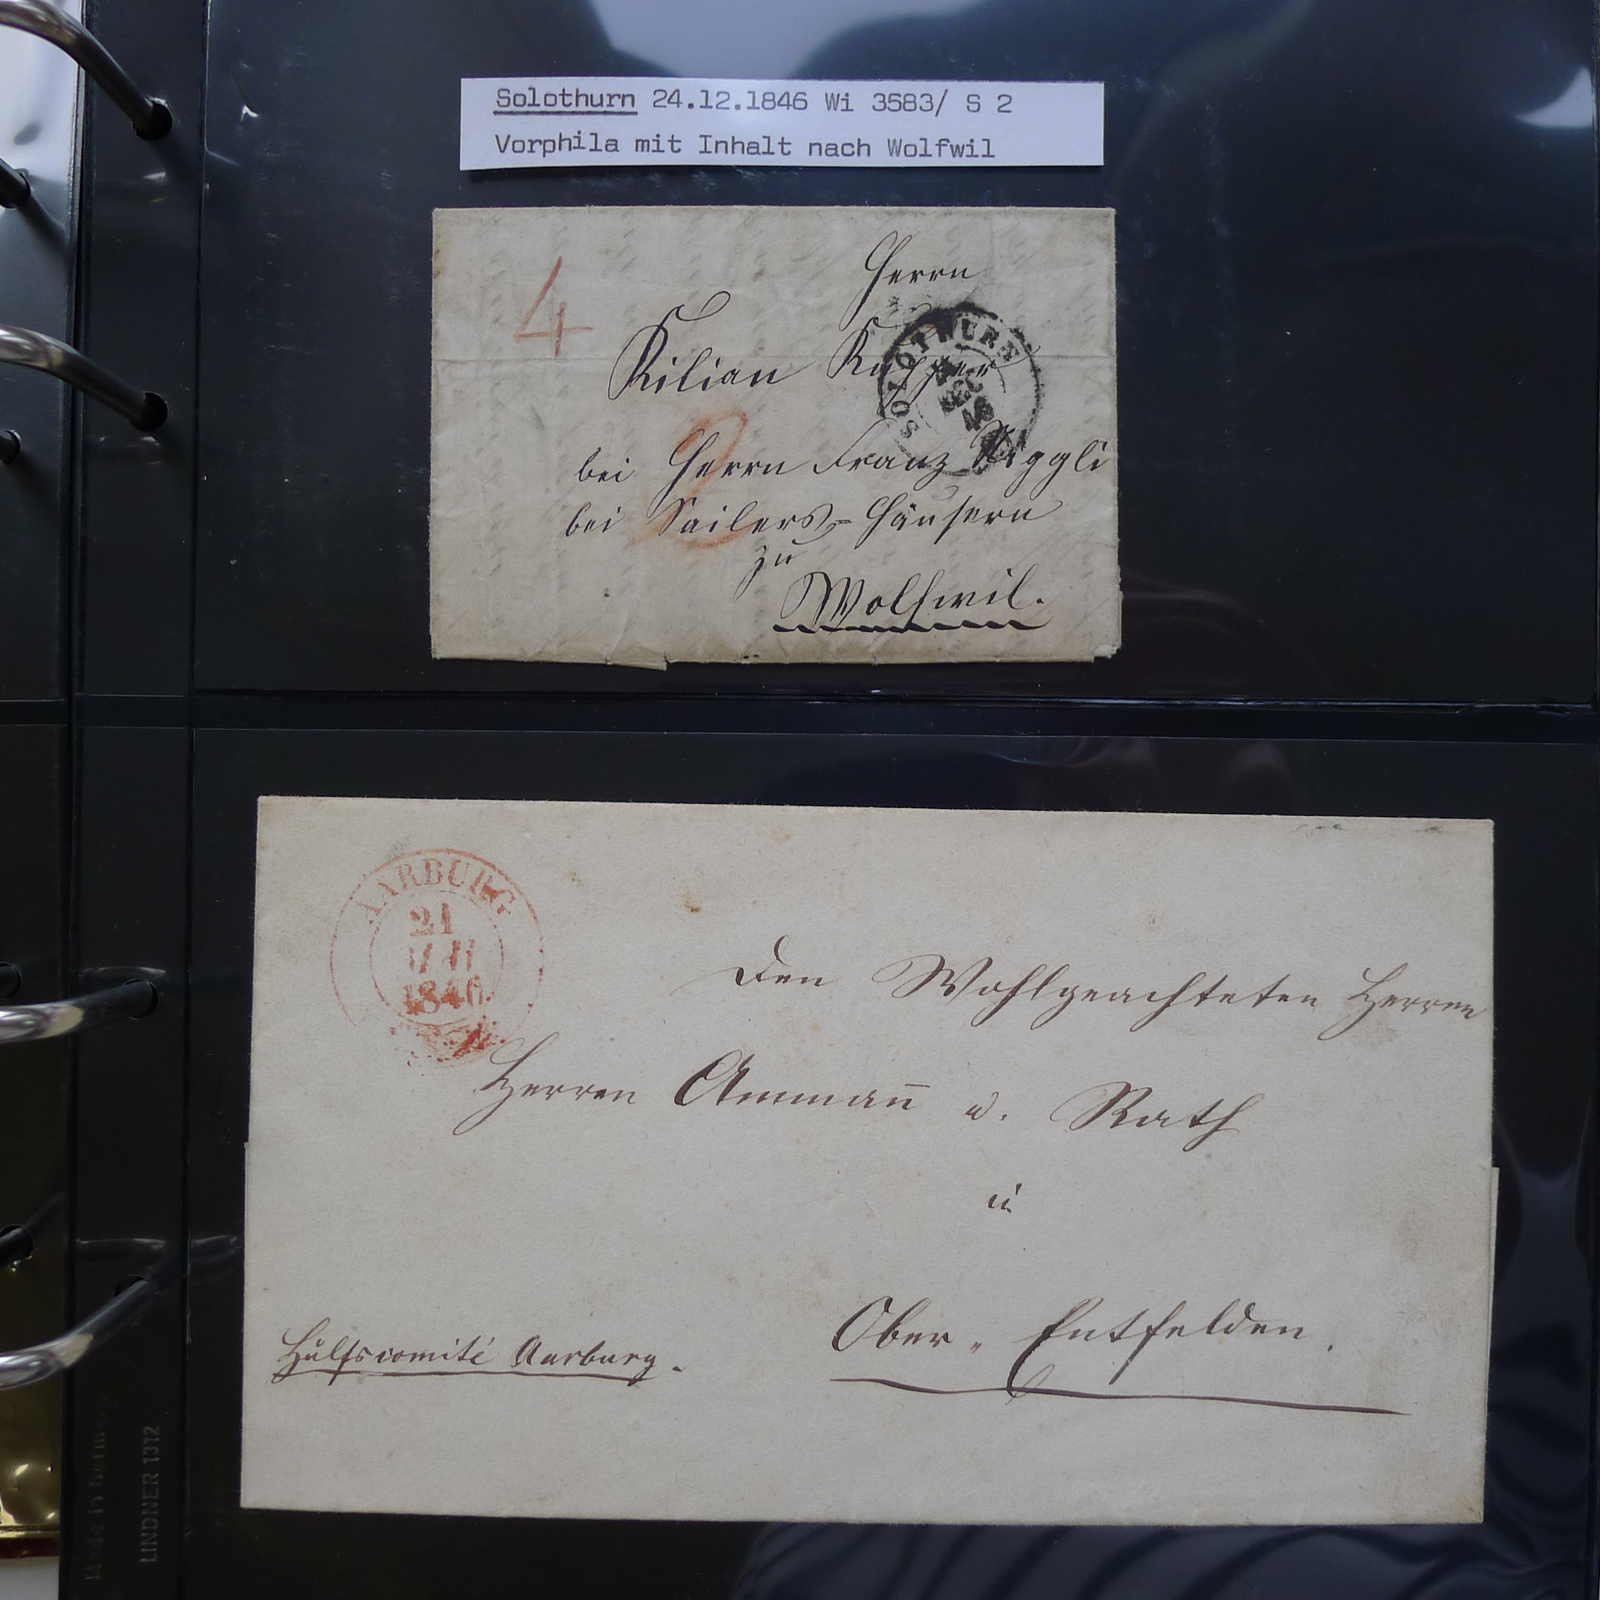 Solothurn 24.12.1846 Wi 3583/ S 2
Vorphila mit Inhalt nach Wolfwil
4
Herrn
Kilian
SOLOTHURN
DEC
46
bei Herrn Franz Niggli
bei Sailers-Häusern
zu
Wolfwil.
AARBURG
21
1846
Den Wohlgeachteten Herren
Herren Ammañ u. Rath
in
Ober-Entfelden.
Hülfscomité Aarburg.
LINDNER 1312